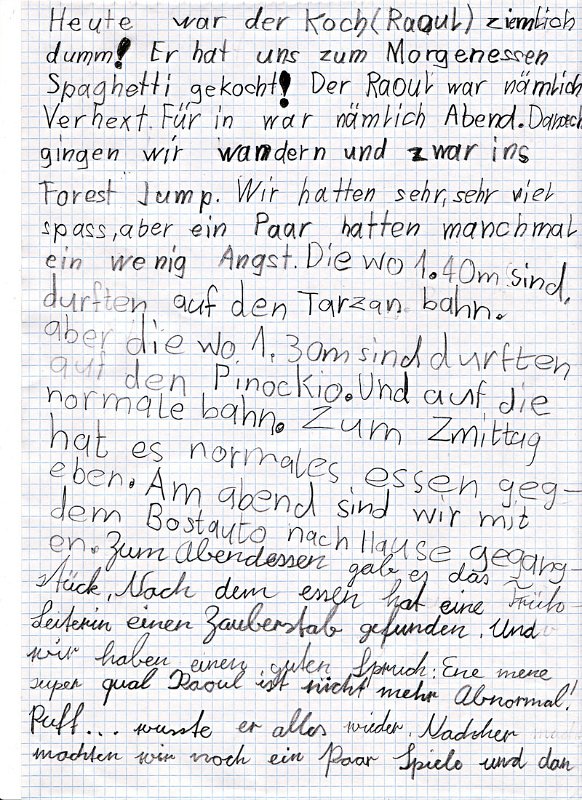 Heute war der Koch (Raoul) ziemlich
dumm! Er hat uns zum Morgenessen
Spaghetti gekocht! Der Raoul war nämlich
Verhext. Für in war nämlich Abend. Danach
gingen wir wandern und zwar ins
Forest Jump. Wir hatten sehr, sehr viel
spass, aber ein Paar hatten manchmal
ein wenig Angst. Die wo 1.40m sind,
durften auf den Tarzan bahn.
aber die wo 1.30m sind durften
auf den Pinockio. Und auf die
normale bahn. Zum Zmittag
hat es normales essen geg-
eben. Am abend sind wir mit
dem Bostauto nach Hause gegang-
en. Zum Abendessen gab es das Früh-
stück, Nach dem essen hat eine
Leiterin einen Zauberstab gefunden. Und
wir haben einen guten Spruch: Ene mene
super qual Raoul ist nicht mehr Abnormal!
Puff... wusste er alles wieder. Nachher
machten wir noch ein Paar Spiele und dan